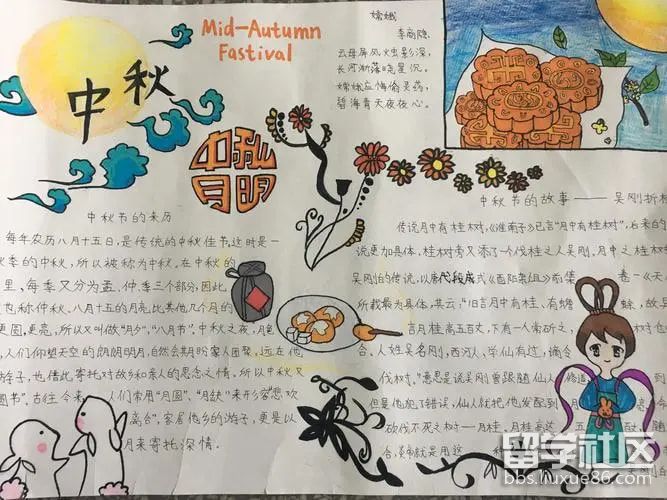 中秋
Mid-Autumn
Fastival
嫦娥
李商隐
云母屏风烛影深,
长河渐落晓星沉。
嫦娥应悔偷灵药,
碧海青天夜夜心。
中秋
月明
中秋节的来历
每年农历八月十五日,是传统的中秋佳节。这时是一
秋季的中秋,所以被称为中秋。在中秋的
里,每季又分为孟、仲、季三个部分,因此
也称仲秋。八月十五的月亮比其他几个月的
更圆,更亮,所以又叫做“月夕”,“八月节”。中秋之夜,月色
,人们仰望天空的朗朗明月,自然会期盼家人团聚,远在他
游子,也借此寄托对故乡和亲人的思念之情。所以中秋又
圆节”。古往今来 人们常用“月圆”、“月缺”来形容悲欢
离合”,客居他乡的游子,更是以
月来寄托深情。
中秋节的故事——吴刚折桂
传说月中有桂树,《淮南子》已言“月中有桂树”,后来的
说更加具体,桂树旁又添了一个伐桂之人吴刚。月中之桂树
吴刚的传说,以唐代段成式《酉阳杂俎》前集 卷一《天
所载最为具体,共云:“旧言月中有桂、有蟾 蜍,故异
言月桂高五百丈,下有一人常斫之, 树 也
合。人姓吴名刚,西河人,学仙有过,谪令
伐树。”意思是说吴刚曾跟随仙人 修道
但是他犯了错误,仙人就把他发配到 月
砍伐不死之树——月桂。月桂高达 五 随
合,
留学社区
bbs.liuxue86.com